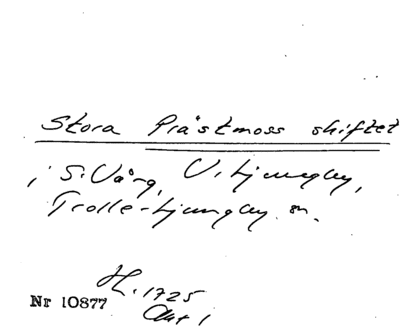 Stora Prästmoss skiftet
i S. Vång, V. Ljungby,
Trolle-Ljungby sn.
H. 1725
Akt 1
Nr 10877